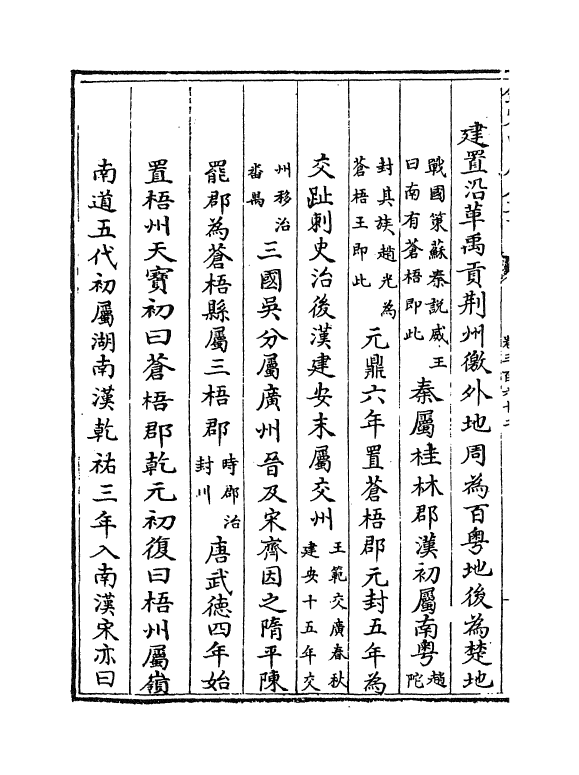 建置沿革禹貢荆州徼外地周為百粤地後為楚地
戰國策蘇秦説威王曰南有蒼梧即此秦屬桂林郡漢初屬南粤趙陀
封其族趙光為蒼梧王即此元鼎六年置蒼梧郡元封五年為
交趾刺史治後漢建安末屬交州王範交廣春秋建安十五年交
州移治番禺三國吳分屬廣州晉及宋齊因之隋平陳
罷郡為蒼梧縣屬三梧郡時郡治封川唐武徳四年始
置梧州天寶初曰蒼梧郡乾元初復曰梧州屬嶺
南道五代初屬湖南漢乾祐三年入南漢宋亦曰